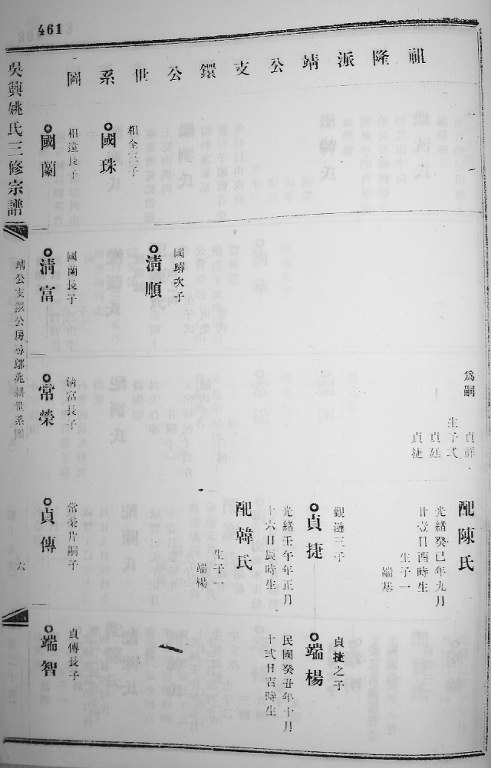 461
祖隆派靖公支公鐶公世系圖
為嗣
貞祥
生子弍
貞廷
貞捷
配陳氏
光緒癸巳年九月
廿壹日酉時生
生子一
端基
觀漣三子
貞捷
光緒壬午年正月
十六日辰時生
配韓氏
生子一
端楊
貞捷之子
端楊
民國癸丑年十月
十弍日吉時生
相全三子
國珠
國璹次子
淸順
相遠長子
國蘭
國蘭長子
淸富
淸富長子
常榮
常榮片嗣子
貞傳
貞傳長子
端智
吳興姚氏三修宗譜
六